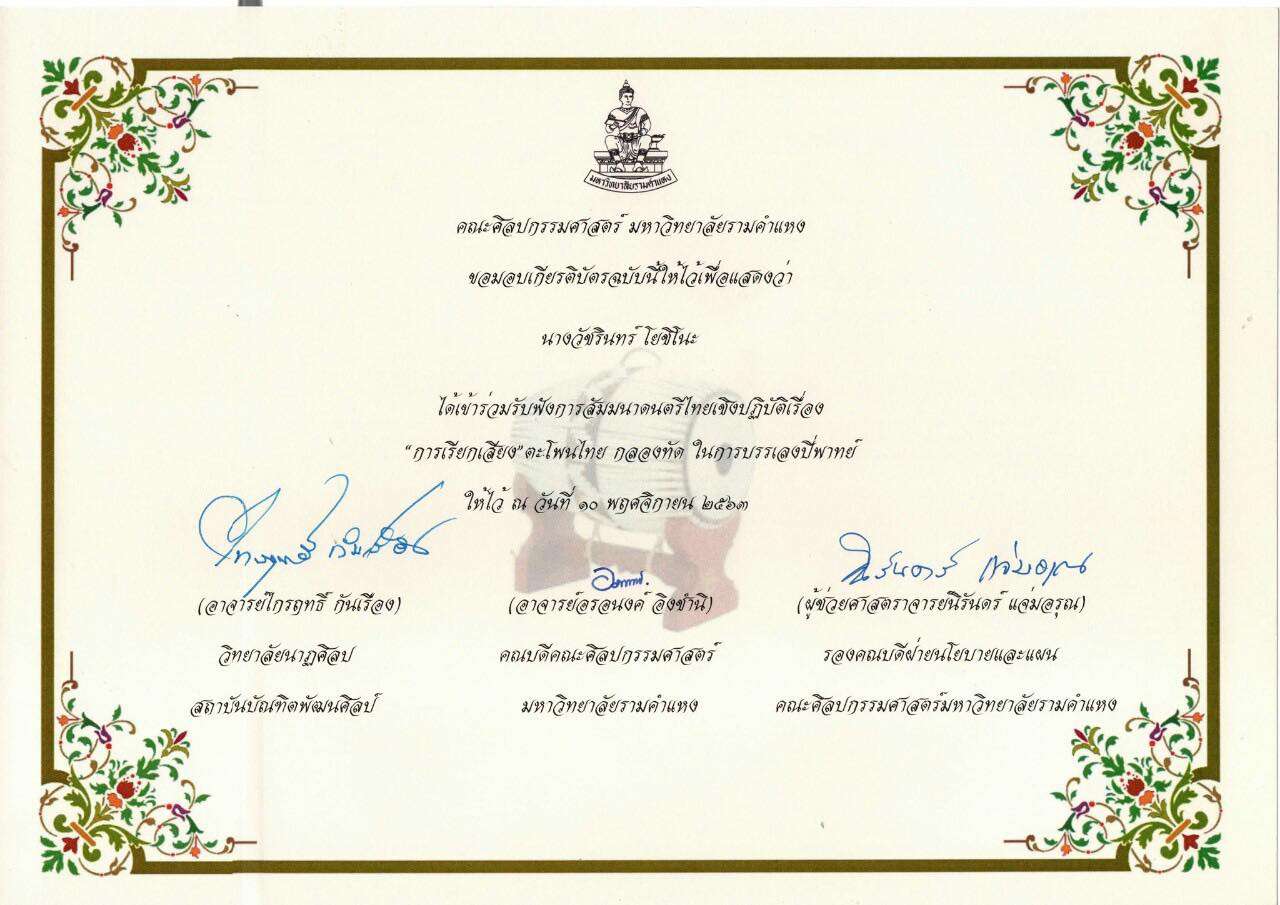 มหาวิทยาลัยรามคำแหง
คณะศิลปกรรมศาสตร์ มหาวิทยาลัยรามคำแหง
ขอมอบเกียรติบัตรฉบับนี้ให้ไว้เพื่อแสดงว่า
นางวัชรินทร์ โยชิโนะ
ได้เข้าร่วมรับฟังการสัมมนาดนตรีไทยเชิงปฏิบัติเรื่อง
“การเรียกเสียง”ตะโพนไทย กลองทัด ในการบรรเลงปี่พาทย์
ให้ไว้ ณ วันที่ ๑๐ พฤศจิกายน ๒๕๖๓
(อาจารย์ไกรฤทธิ์ กันเรือง) (อาจารย์อรอนงค์ อิงชำนิ) (ผู้ช่วยศาสตราจารย์นิรันดร์ แจ่มอรุณ)
วิทยาลัยนาฏศิลป คณบดีคณะศิลปกรรมศาสตร์ รองคณบดีฝ่ายนโยบายและแผน
สถาบันบัณฑิตพัฒนศิลป์ มหาวิทยาลัยรามคำแหง คณะศิลปกรรมศาสตร์มหาวิทยาลัยรามคำแหง